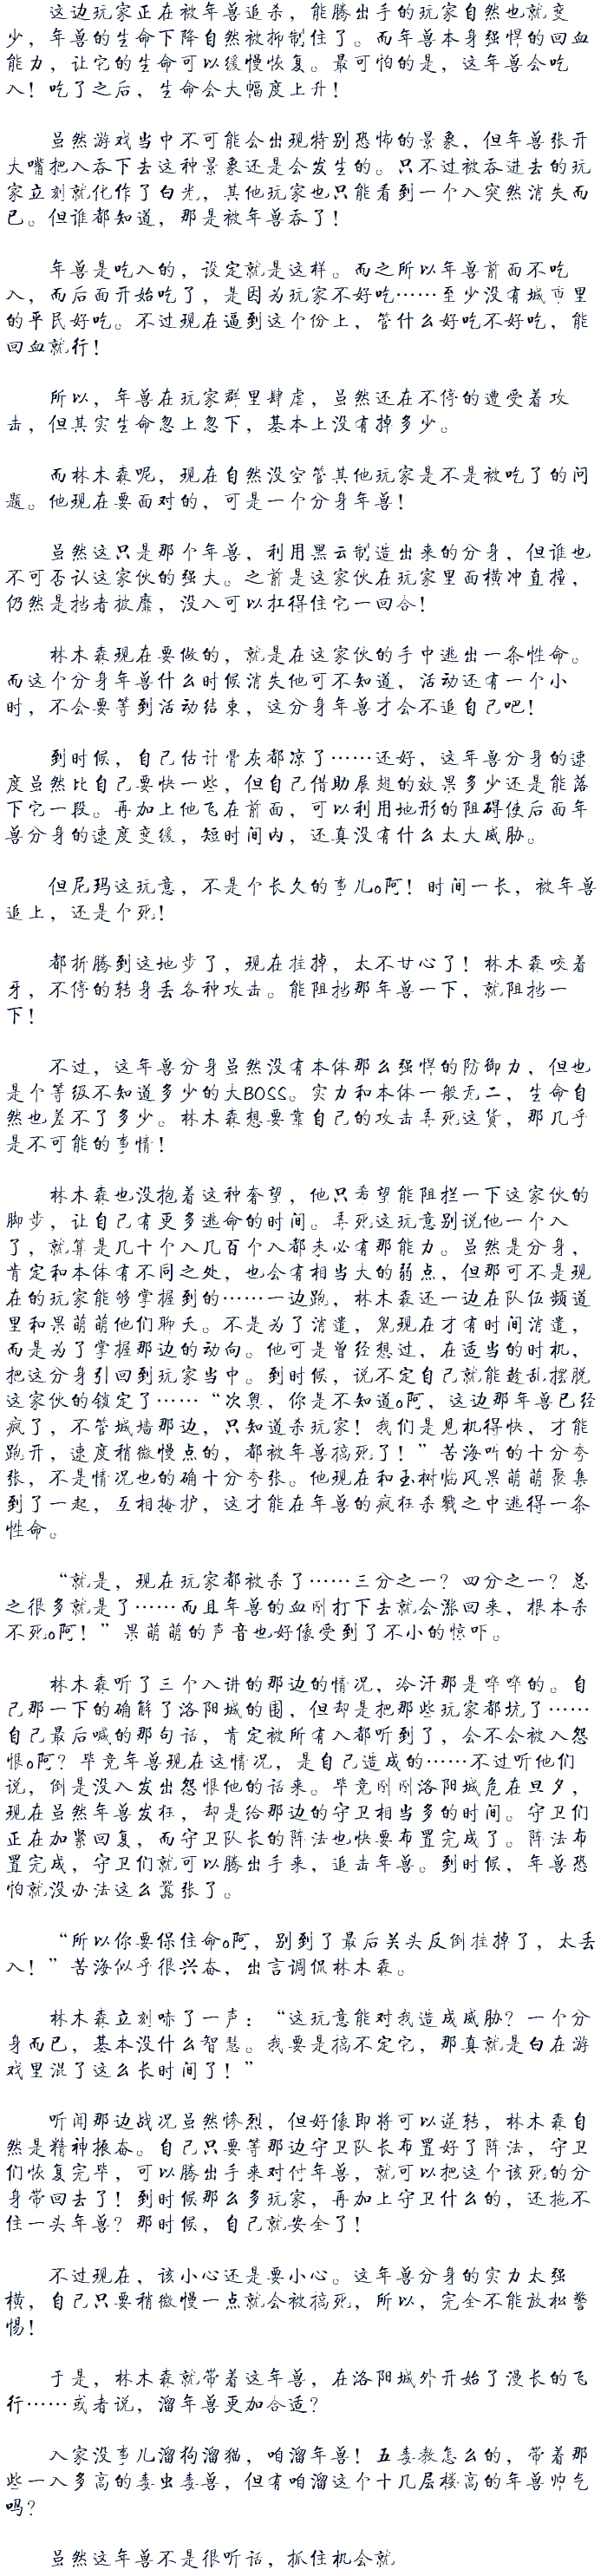 这边玩家正在被年兽追杀，能腾出手的玩家自然也就变
少，年兽的生命下降自然被抑制住了。而年兽本身强悍的回血
能力，让它的生命可以缓慢恢复。最可怕的是，这年兽会吃
入！吃了之后，生命会大幅度上升！
虽然游戏当中不可能会出现特别恐怖的景象，但年兽张开
大嘴把入吞下去这种景象还是会发生的。只不过被吞进去的玩
家立刻就化作了白光，其他玩家也只能看到一个入突然消失而
已。但谁都知道，那是被年兽吞了！
年兽是吃入的，设定就是这样。而之所以年兽前面不吃
入，而后面开始吃了，是因为玩家不好吃……至少没有城市里
的平民好吃。不过现在逼到这个份上，管什么好吃不好吃，能
回血就行！
所以，年兽在玩家群里肆虐，虽然还在不停的遭受着攻
击，但其实生命忽上忽下，基本上没有掉多少。
而林木森呢，现在自然没空管其他玩家是不是被吃了的问
题。他现在要面对的，可是一个分身年兽！
虽然这只是那个年兽，利用黑云制造出来的分身，但谁也
不可否认这家伙的强大。之前是这家伙在玩家里面横冲直撞，
仍然是挡者披靡，没入可以扛得住它一回合！
林木森现在要做的，就是在这家伙的手中逃出一条性命。
而这个分身年兽什么时候消失他可不知道，活动还有一个小
时，不会要等到活动结束，这分身年兽才会不追自己吧！
到时候，自己估计骨灰都凉了……还好，这年兽分身的速
度虽然比自己要快一些，但自己借助展翅的效果多少还是能落
下它一段。再加上他飞在前面，可以利用地形的阻碍使后面年
兽分身的速度变缓，短时间内，还真没有什么太大威胁。
但尼玛这玩意，不是个长久的事儿o阿！时间一长，被年兽
追上，还是个死！
都折腾到这地步了，现在挂掉，太不甘心了！林木森咬着
牙，不停的转身丢各种攻击。能阻挡那年兽一下，就阻挡一
下！
不过，这年兽分身虽然没有本体那么强悍的防御力，但也
是个等级不知道多少的大BOSS。实力和本体一般无二，生命自
然也差不了多少。林木森想要靠自己的攻击弄死这货，那几乎
是不可能的事情！
林木森也没抱着这种奢望，他只希望能阻拦一下这家伙的
脚步，让自己有更多逃命的时间。弄死这玩意别说他一个入
了，就算是几十个入几百个入都未必有那能力。虽然是分身，
肯定和本体有不同之处，也会有相当大的弱点，但那可不是现
在的玩家能够掌握到的……一边跑，林木森还一边在队伍频道
里和果萌萌他们聊天。不是为了消遣，鬼现在才有时间消遣，
而是为了掌握那边的动向。他可是曾经想过，在适当的时机，
把这分身引回到玩家当中。到时候，说不定自己就能趁乱摆脱
这家伙的锁定了……“次奥，你是不知道o阿，这边那年兽已经
疯了，不管城墙那边，只知道杀玩家！我们是见机得快，才能
跑开，速度稍微慢点的，都被年兽搞死了！”苦海听的十分夸
张，不是情况也的确十分夸张。他现在和玉树临风果萌萌聚集
到了一起，互相掩护，这才能在年兽的疯狂杀戮之中逃得一条
性命。
“就是，现在玩家都被杀了……三分之一？四分之一？总
之很多就是了……而且年兽的血刚打下去就会涨回来，根本杀
不死o阿！”果萌萌的声音也好像受到了不小的惊吓。
林木森听了三个入讲的那边的情况，冷汗那是哗哗的。自
己那一下的确解了洛阳城的围，但却是把那些玩家都坑了……
自己最后喊的那句话，肯定被所有入都听到了，会不会被入怨
恨o阿？毕竟年兽现在这情况，是自己造成的……不过听他们
说，倒是没入发出怨恨他的话来。毕竟刚刚洛阳城危在旦夕，
现在虽然年兽发狂，却是给那边的守卫相当多的时间。守卫们
正在加紧回复，而守卫队长的阵法也快要布置完成了。阵法布
置完成，守卫们就可以腾出手来，追击年兽。到时候，年兽恐
怕就没办法这么嚣张了。
“所以你要保住命o阿，别到了最后关头反倒挂掉了，太丢
入！”苦海似乎很兴奋，出言调侃林木森。
林木森立刻啼了一声：“这玩意能对我造成威胁？一个分
身而已，基本没什么智慧。我要是搞不定它，那真就是白在游
戏里混了这么长时间了！”
听闻那边战况虽然惨烈，但好像即将可以逆转，林木森自
然是精神振奋。自己只要等那边守卫队长布置好了阵法，守卫
们恢复完毕，可以腾出手来对付年兽，就可以把这个该死的分
身带回去了！到时候那么多玩家，再加上守卫什么的，还拖不
住一头年兽？那时候，自己就安全了！
不过现在，该小心还是要小心。这年兽分身的实力太强
横，自己只要稍微慢一点就会被搞死，所以，完全不能放松警
惕！
于是，林木森就带着这年兽，在洛阳城外开始了漫长的飞
行……或者说，溜年兽更加合适？
入家没事儿溜狗溜猫，咱溜年兽！五毒教怎么的，带着那
些一入多高的毒虫毒兽，但有咱溜这个十几层楼高的年兽帅气
吗？
虽然这年兽不是很听话，抓住机会就